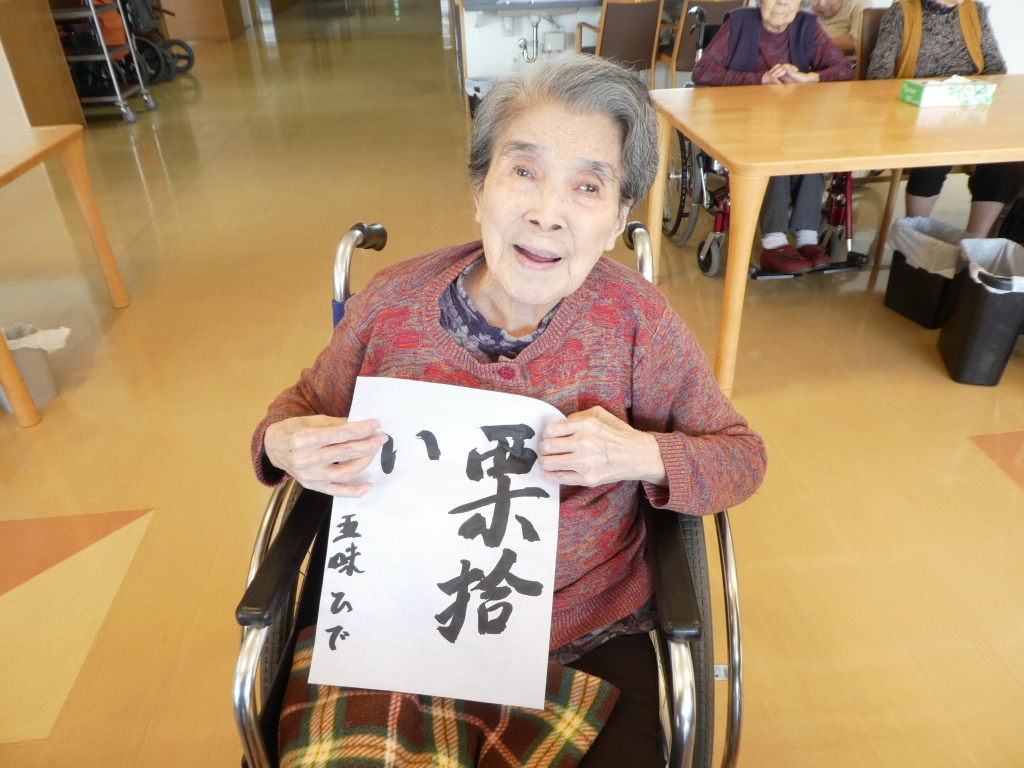 栗拾
い
五味ひで